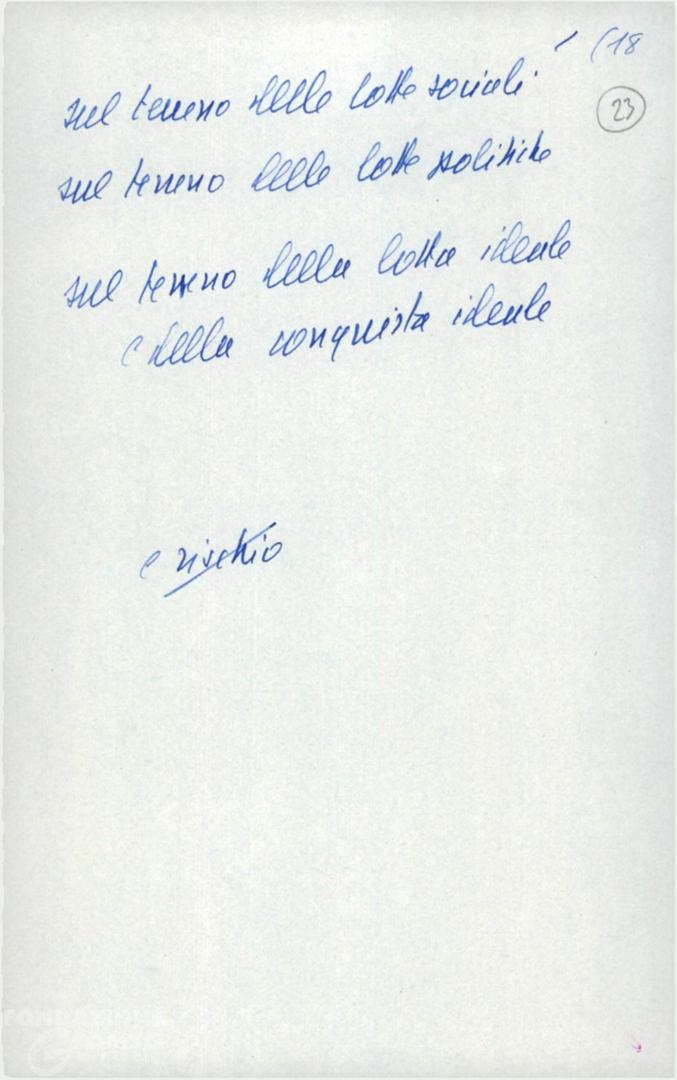 (18
23
sul terreno delle lotte sociali
sul terreno delle lotte politiche
sul terreno della lotta ideale
e della conquista ideale
e rischio
FONDAZIONE
GRAMSCI